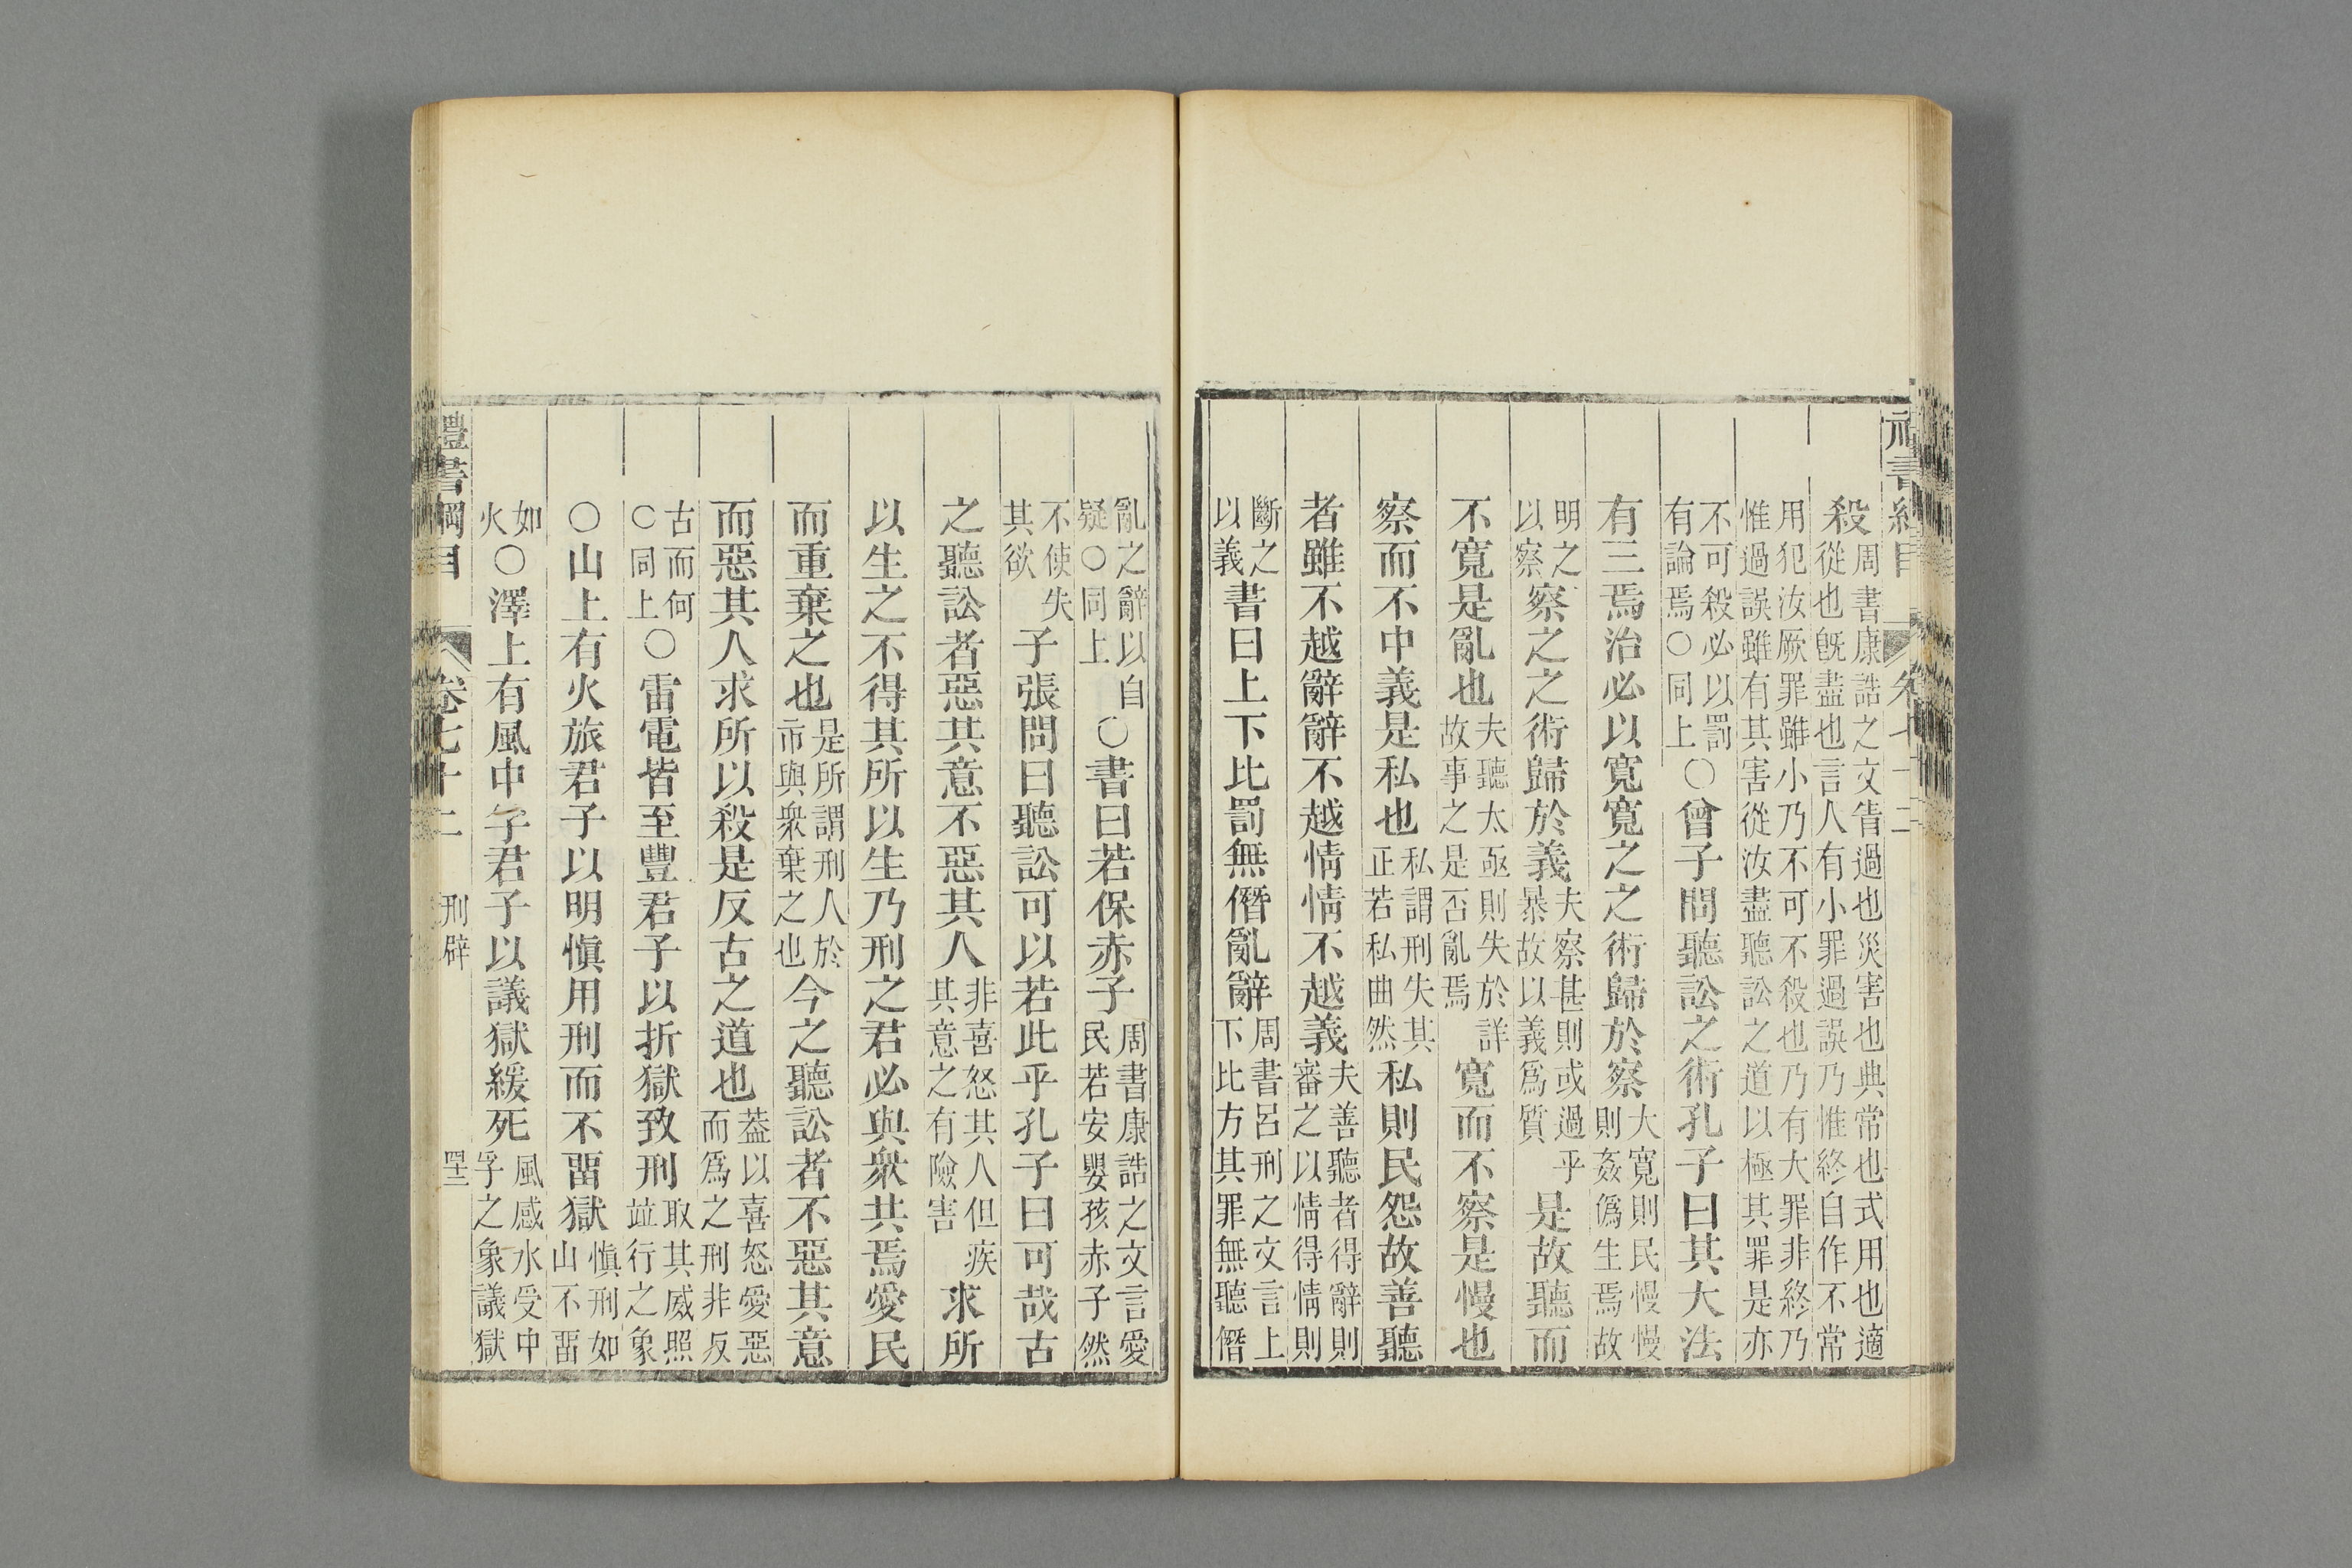 殺周書康誥之文眚過也災害也典常也式用也適從也旣盡也言人有小罪過誤乃惟終自作不常
用犯汝厥罪雖小乃不可不殺也乃有大罪非終乃惟過誤雖有其害從汝盡聽訟之道以極其罪是亦
不可殺必以罰有論焉○同上○曾子問聽訟之術孔子曰其大法
有三焉治必以寬寬之之術歸於察大寬則民慢慢則姦僞生焉故
明之以察察之之術歸於義夫察甚則或過乎暴故以義爲質是故聽而
不寬是亂也夫聽太亟則失於詳故事之是否亂焉寬而不察是慢也
察而不中義是私也私謂刑失其正若私曲然私則民怨故善聽
者雖不越辭辭不越情情不越義夫善聽者得辭則審之以情得情則
斷之以義書曰上下比罰無僭亂辭周書呂刑之文言上下比方其罪無聽僭
亂之辭以自疑○同上○書曰若保赤子周書康誥之文言愛民若安嬰孩赤子然
不使失其欲子張問曰聽訟可以若此乎孔子曰可哉古
之聽訟者惡其意不惡其人非喜怒其人但疾其意之有險害求所
以生之不得其所以生乃刑之君必與衆共焉愛民
而重棄之也是所謂刑人於市與衆棄之也今之聽訟者不惡其意
而惡其人求所以殺是反古之道也葢以喜怒愛惡而爲之刑非反
古而何○同上○雷電皆至豐君子以折獄致刑取其威照竝行之象
○山上有火旅君子以明愼用刑而不畱獄愼刑如山不畱
如火○澤上有風中孚君子以議獄緩死風感水受中孚之象議獄
禮書綱目 卷七十二 刑辟